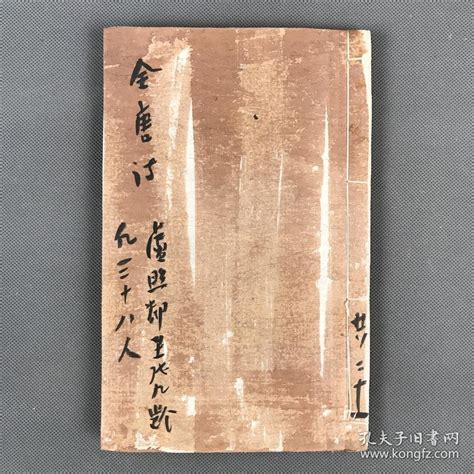 全唐詩
盧照鄰至張九齡
凡三十八人
孔夫子旧书网
www.kongfz.com